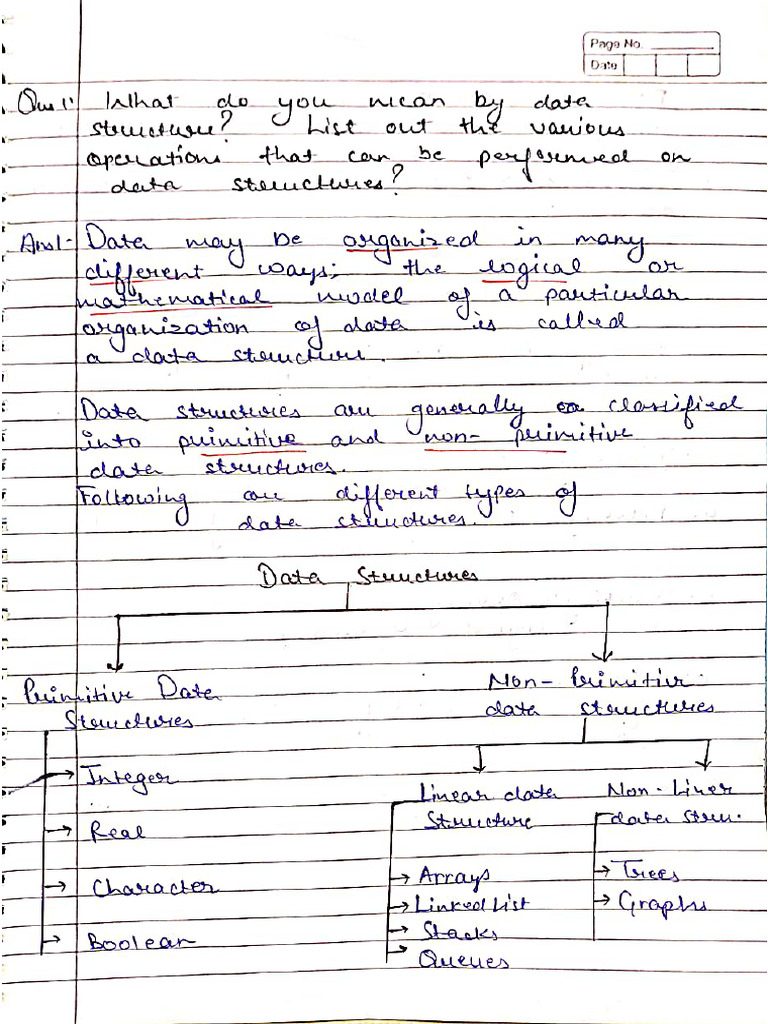 Page No.
Date
Ques 1: What do you mean by data
structure? List out the various
operations that can be performed on
data structures?
Ans1- Data may be organized in many
different ways; the logical or
mathematical model of a particular
organization of data is called
a data structure.
Data structures are generally classified
into primitive and non- primitive
data structures.
Following are different types of
data structures.
Data Structures
Primitive Data
Structures
Non- Primitive
data structures
Integer
Real
Character
Boolean
Linear data
Structure
Arrays
Linked List
Stacks
Queues
Non- Liner
data stru.
Trees
Graphs